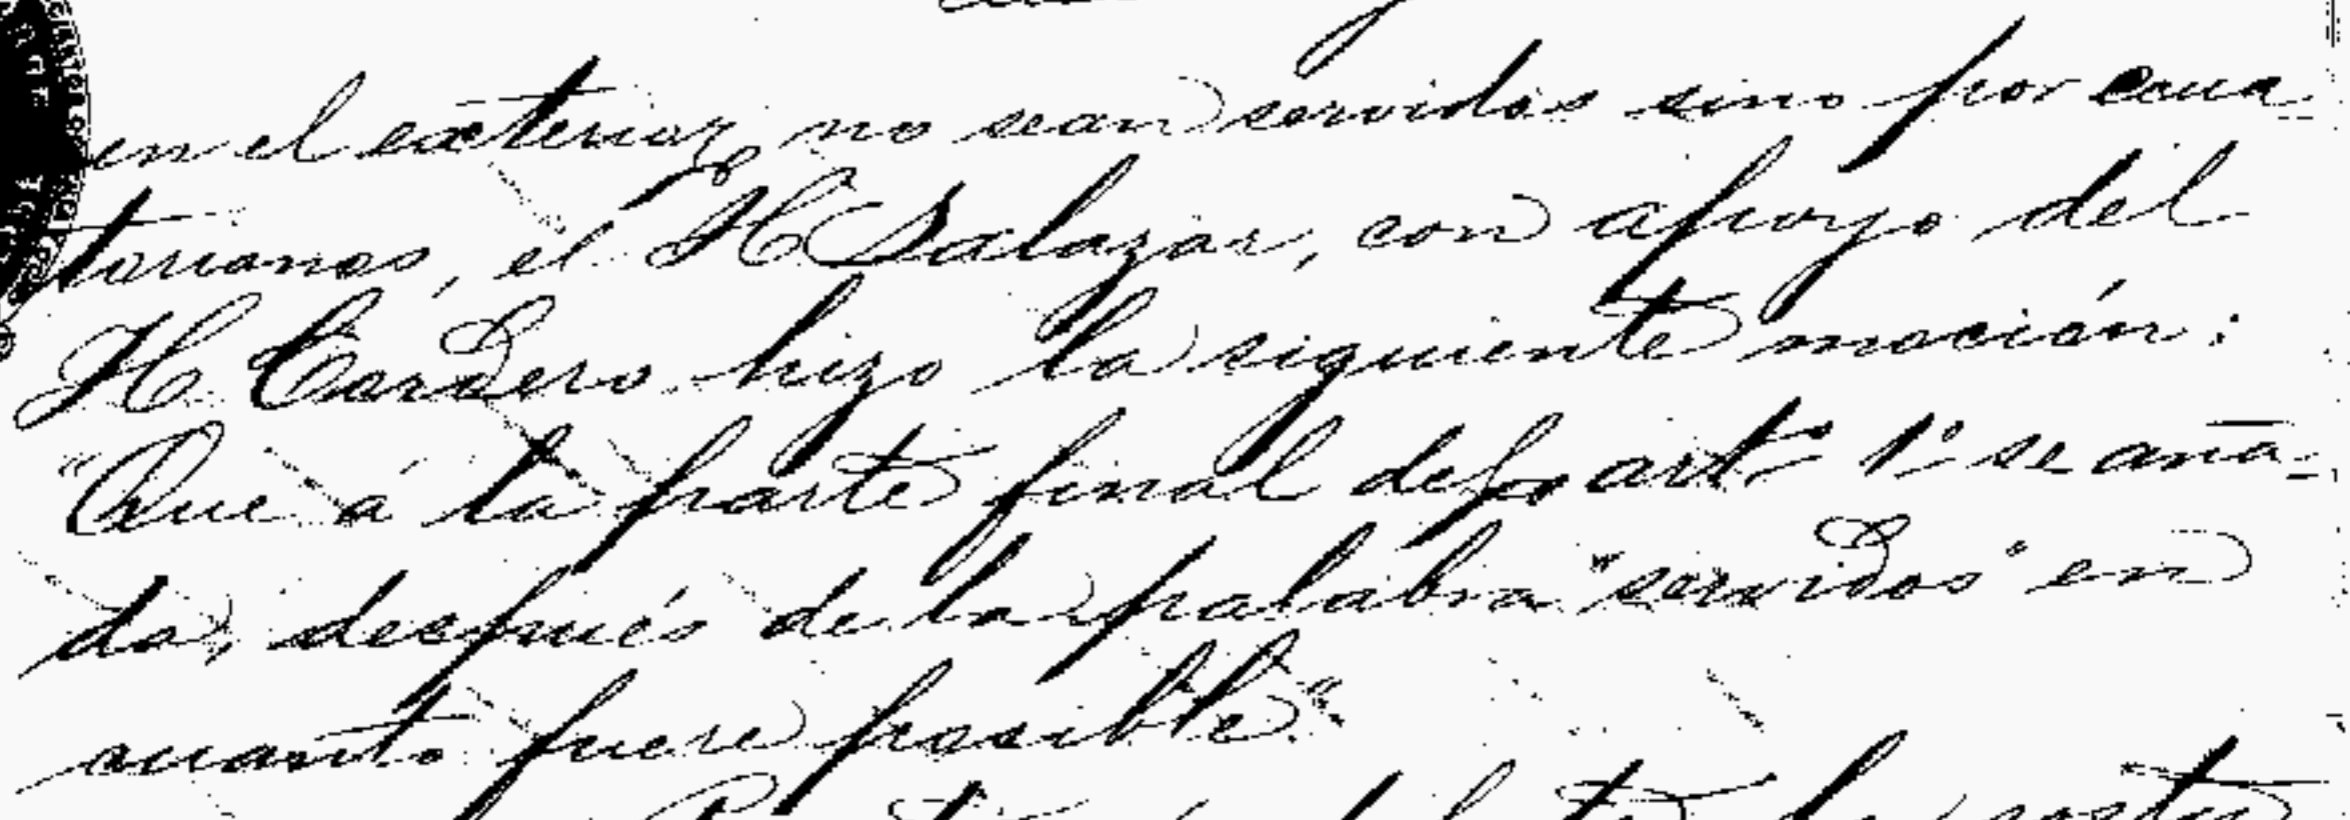 en el exterior, no sean servidos sino por ecua
torianos, el H Salazar, con apoyo del
H. Cordero hizo la siguiente moción:
"Que á la parte final del art. 1º se aña-
da, después de la palabra "servidos" en
cuanto fuere posible."